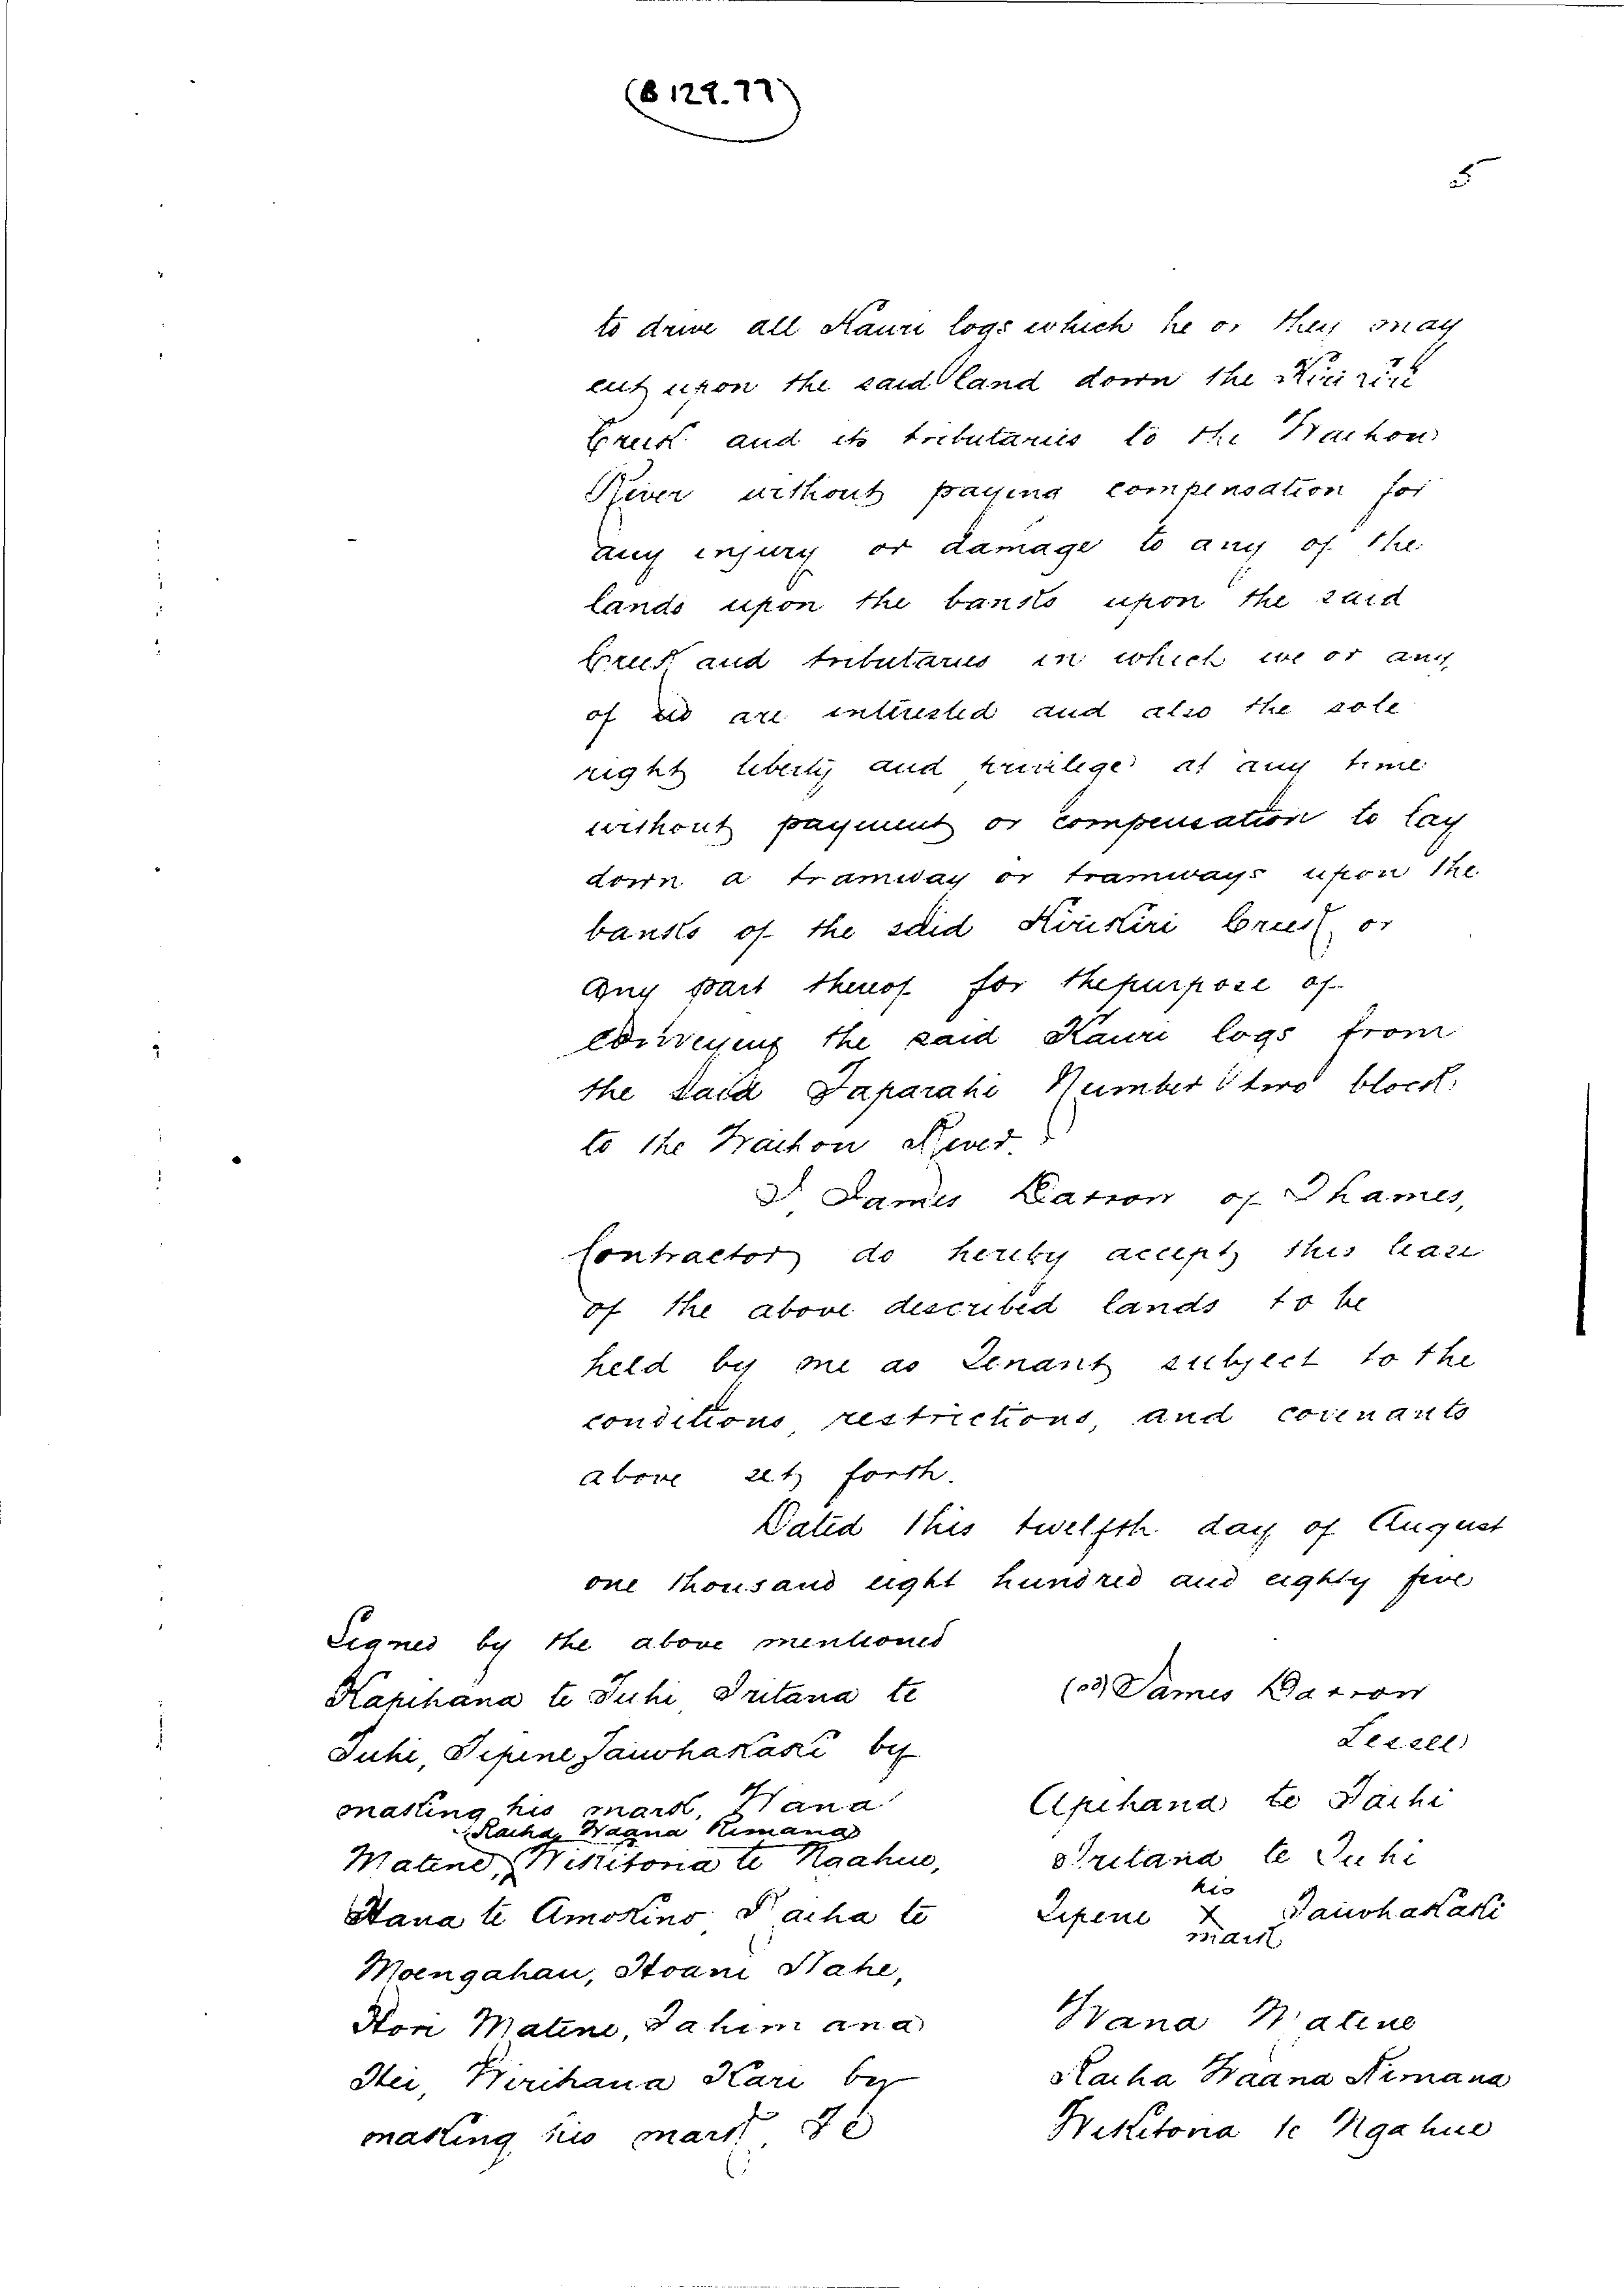 (B 129.77)
5
to drive all Kauri logs which he or they may
cut upon the said land down the Kirikiri
Creek and its tributaries to the Waihou
River without paying compensation for
any injury or damage to any of the
lands upon the banks upon the said
Creek and tributaries in which we or any
of us are interested and also the sole
right liberty and privilege at any time
without payment or compensation to lay
down a tramway or tramways upon the
banks of the said Kirikiri Creek or
any part thereof for the purpose of
conveying the said Kauri logs from
the said Taparahi Number two block
to the Waihou River.
I James Darrow of Thames,
Contractor do hereby accept this lease
of the above described lands to be
held by me as Tenant subject to the
conditions, restrictions, and covenants
above set forth.
Dated this twelfth day of August
one thousand eight hundred and eighty five
Signed by the above mentioned
Hapihana te Tuhi Tritana te
Tuhi, Tipene Taiwhakaki by
making his mark, Wana
Racha Wagna Rimana
Matene, Wikitoria te Ngahue,
Hana te Amokino Racha te
Moengahau, Hoani Nahe,
Hori Matene, Tahimana
Hei, Wirihana Kari by
making his mark Te
(sd) James Darrow
Lessee
Apihana te Tuhi
Tritana te Tuhi
his
Tipene X Taiwhakaki
mark
Wana Matene
Racha Waana Rimana
Wikitoria te Ngahue